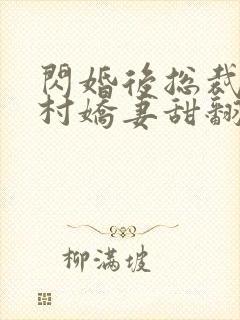 閃婚後總裁
村嬌妻甜翻
柳滿坡